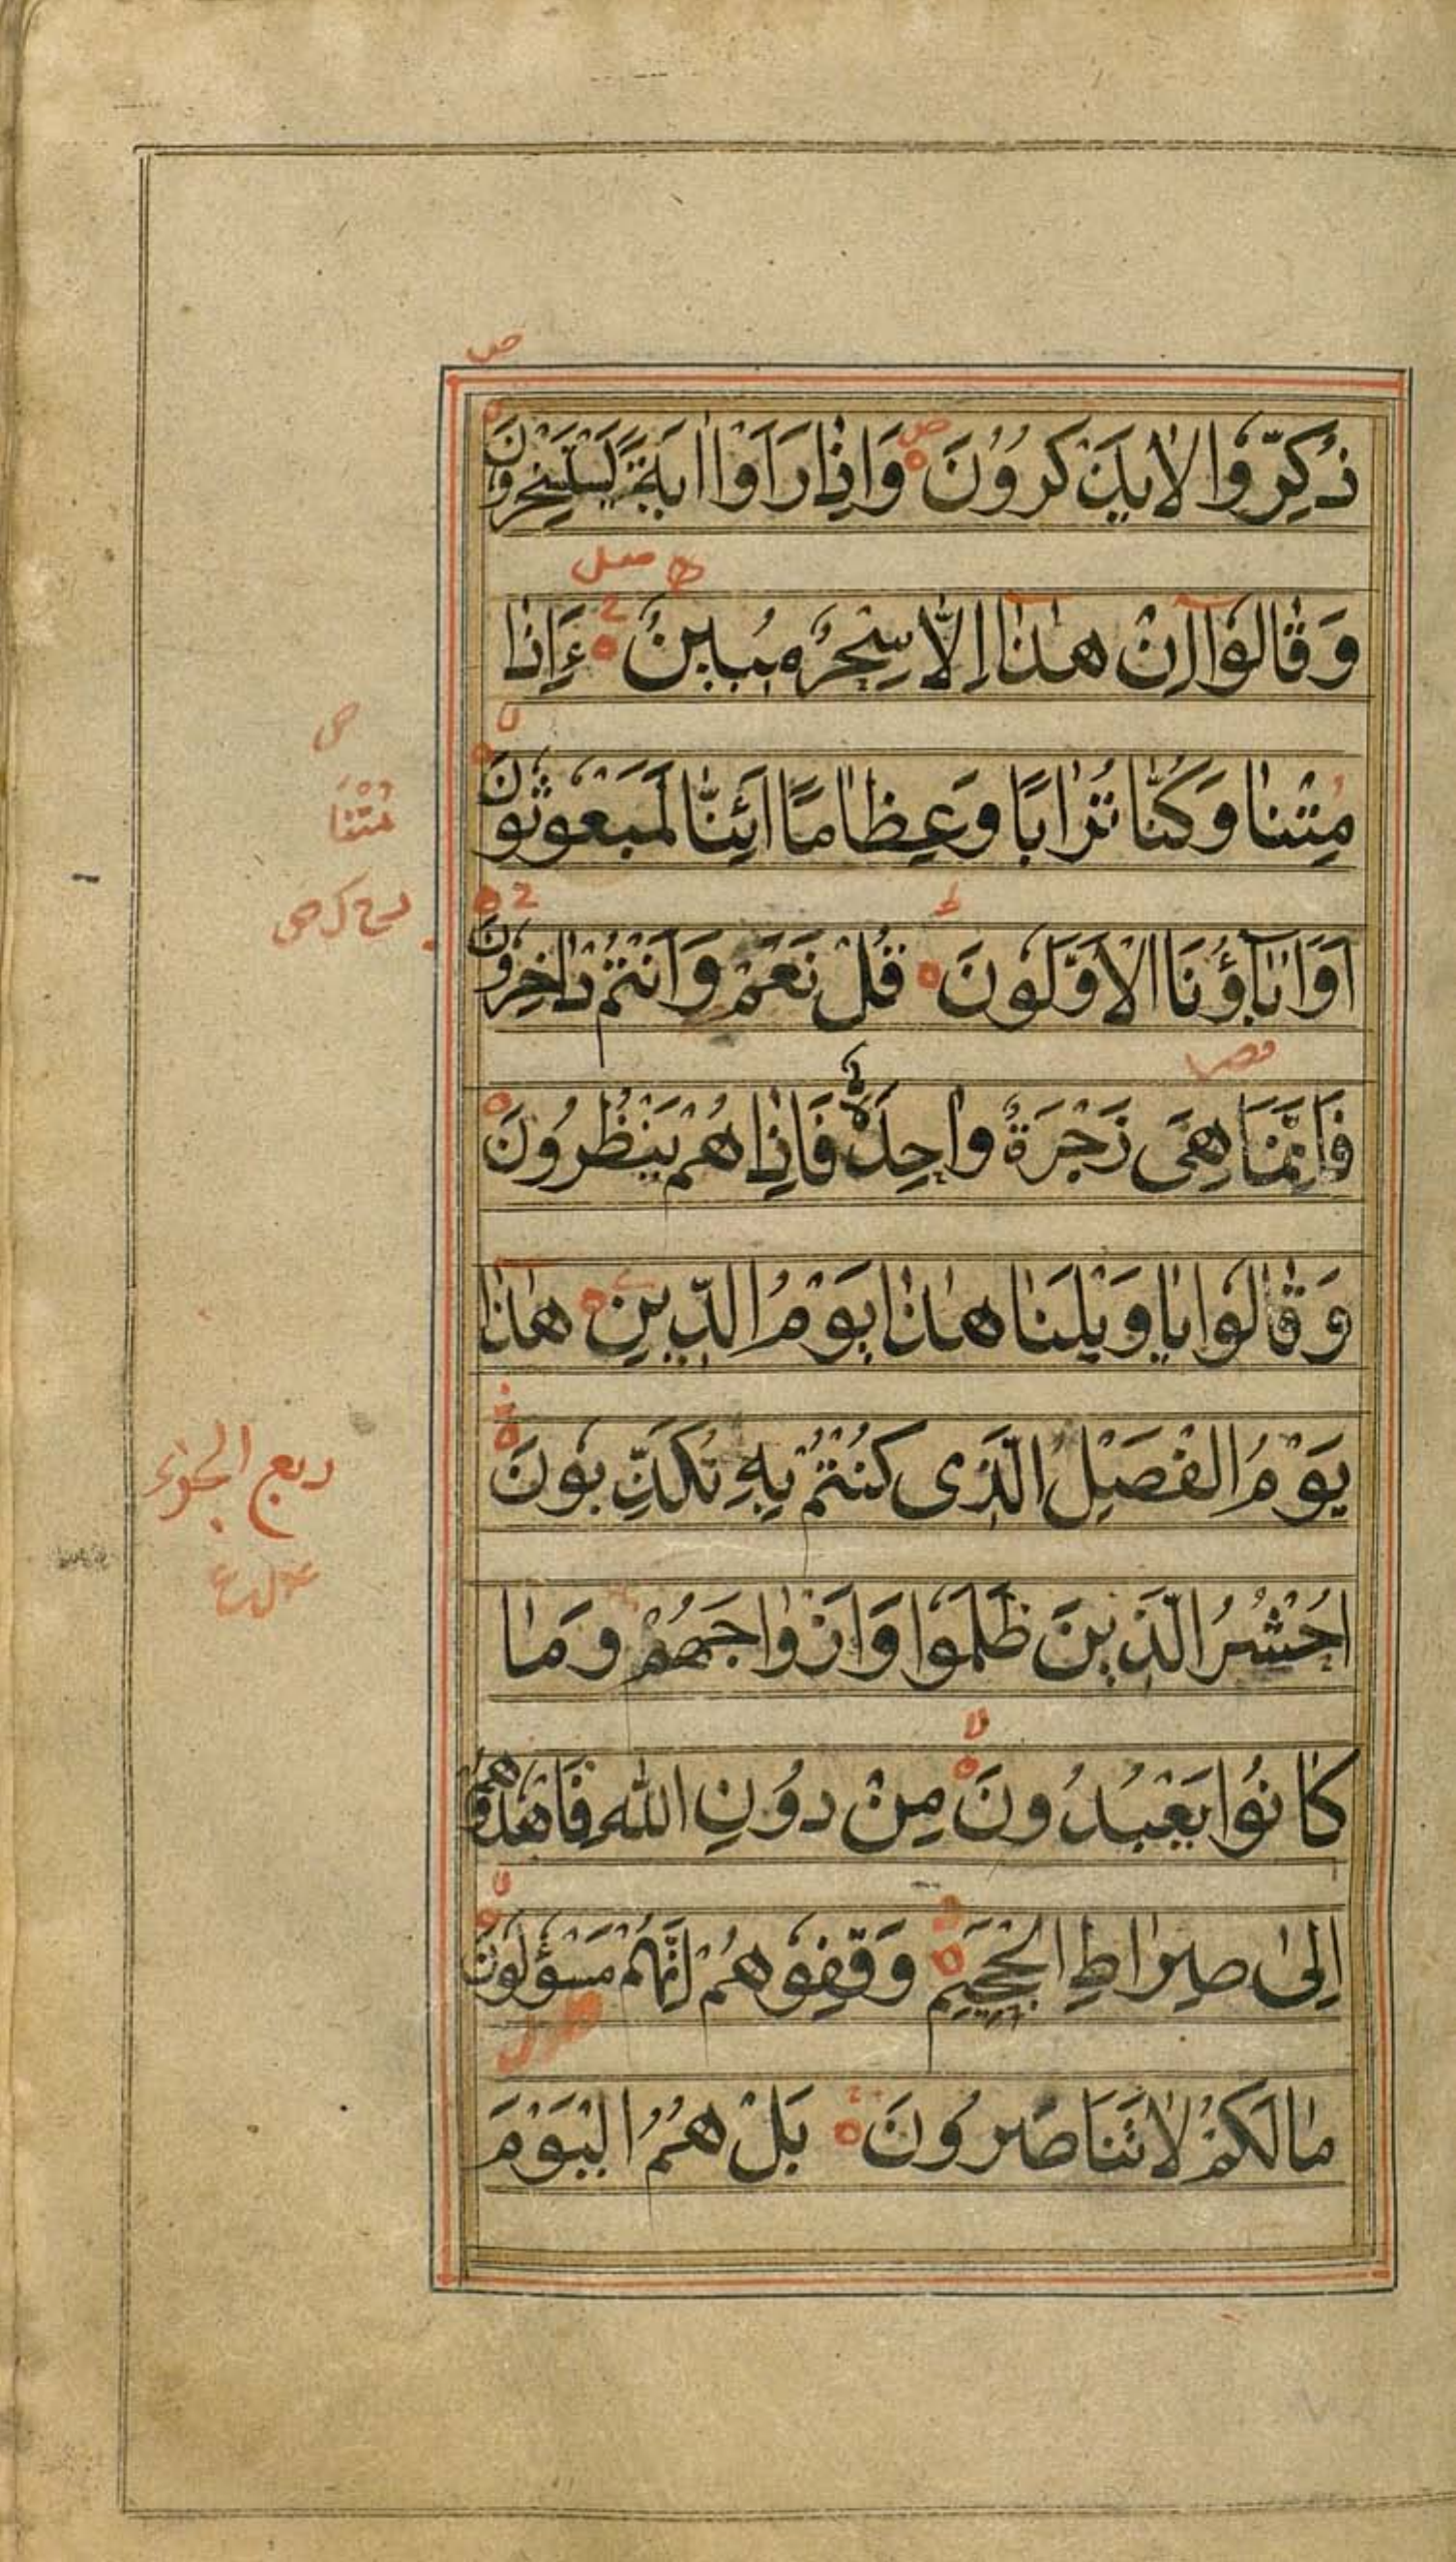 ذُكِّرُوا لَا يَذْكُرُونَ وَاِذَا رَاَوْا اٰيَةً يَسْتَسْخِرُونَ
وَقَالُوا اِنْ هٰذَا اِلَّا سِحْرٌ مُبِينٌ ءَاِذَا
مِتْنَا وَكُنَّا تُرَابًا وَعِظَامًا اَئِنَّا لَمَبْعُوثُونَ
اَوَاٰبَآؤُنَا الْاَوَّلُونَ قُلْ نَعَمْ وَاَنْتُمْ دَاخِرُونَ
فَاِنَّمَا هِىَ زَجْرَةٌ وَاحِدَةٌ فَاِذَا هُمْ يَنْظُرُونَ
وَقَالُوا يَا وَيْلَنَا هٰذَا يَوْمُ الدِّينِ هٰذَا
يَوْمُ الْفَصْلِ الَّذِى كُنْتُمْ بِهِ تُكَذِّبُونَ
اُحْشُرُ الَّذِينَ ظَلَمُوا وَاَزْوَاجَهُمْ وَمَا
كَانُوا يَعْبُدُونَ مِنْ دُونِ اللّٰهِ فَاهْدُوهُمْ
اِلٰى صِرَاطِ الْجَحِيمِ وَقِفُوهُمْ اِنَّهُمْ مَسْؤُلُونَ
مَا لَكُمْ لَا تَنَاصَرُونَ بَلْ هُمُ الْيَوْمَ
مُتْنَا
ربع الجزء